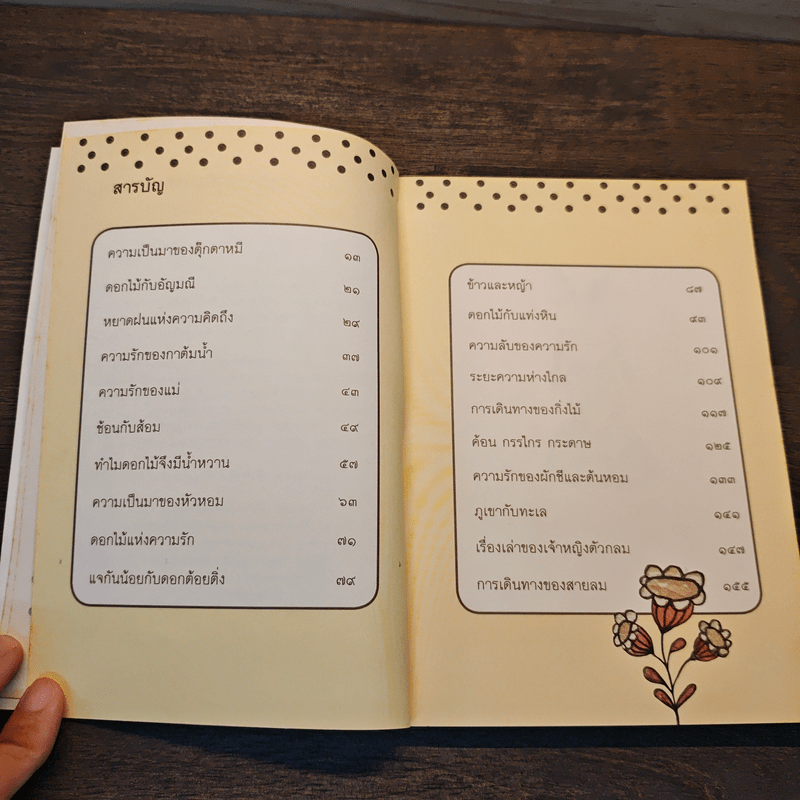 สารบัญ
ความเป็นมาของตุ๊กตาหมี ๑๓
ดอกไม้กับอัญมณี ๒๑
หยาดฝนแห่งความคิดถึง ๒๙
ความรักของกาต้มน้ำ ๓๗
ความรักของแม่ ๔๓
ช้อนกับส้อม ๔๙
ทำไมดอกไม้จึงมีน้ำหวาน ๕๗
ความเป็นมาของหัวหอม ๖๓
ดอกไม้แห่งความรัก ๗๑
แจกันน้อยกับดอกต้อยติ่ง ๗๙
ข้าวและหญ้า ๘๗
ดอกไม้กับแท่งหิน ๙๓
ความลับของความรัก ๑๐๑
ระยะความห่างไกล ๑๐๙
การเดินทางของกิ่งไม้ ๑๑๗
ค้อน กรรไกร กระดาษ ๑๒๕
ความรักของผักชีและต้นหอม ๑๓๓
ภูเขากับทะเล ๑๔๑
เรื่องเล่าของเจ้าหญิงตัวกลม ๑๔๗
การเดินทางของสายลม ๑๕๕